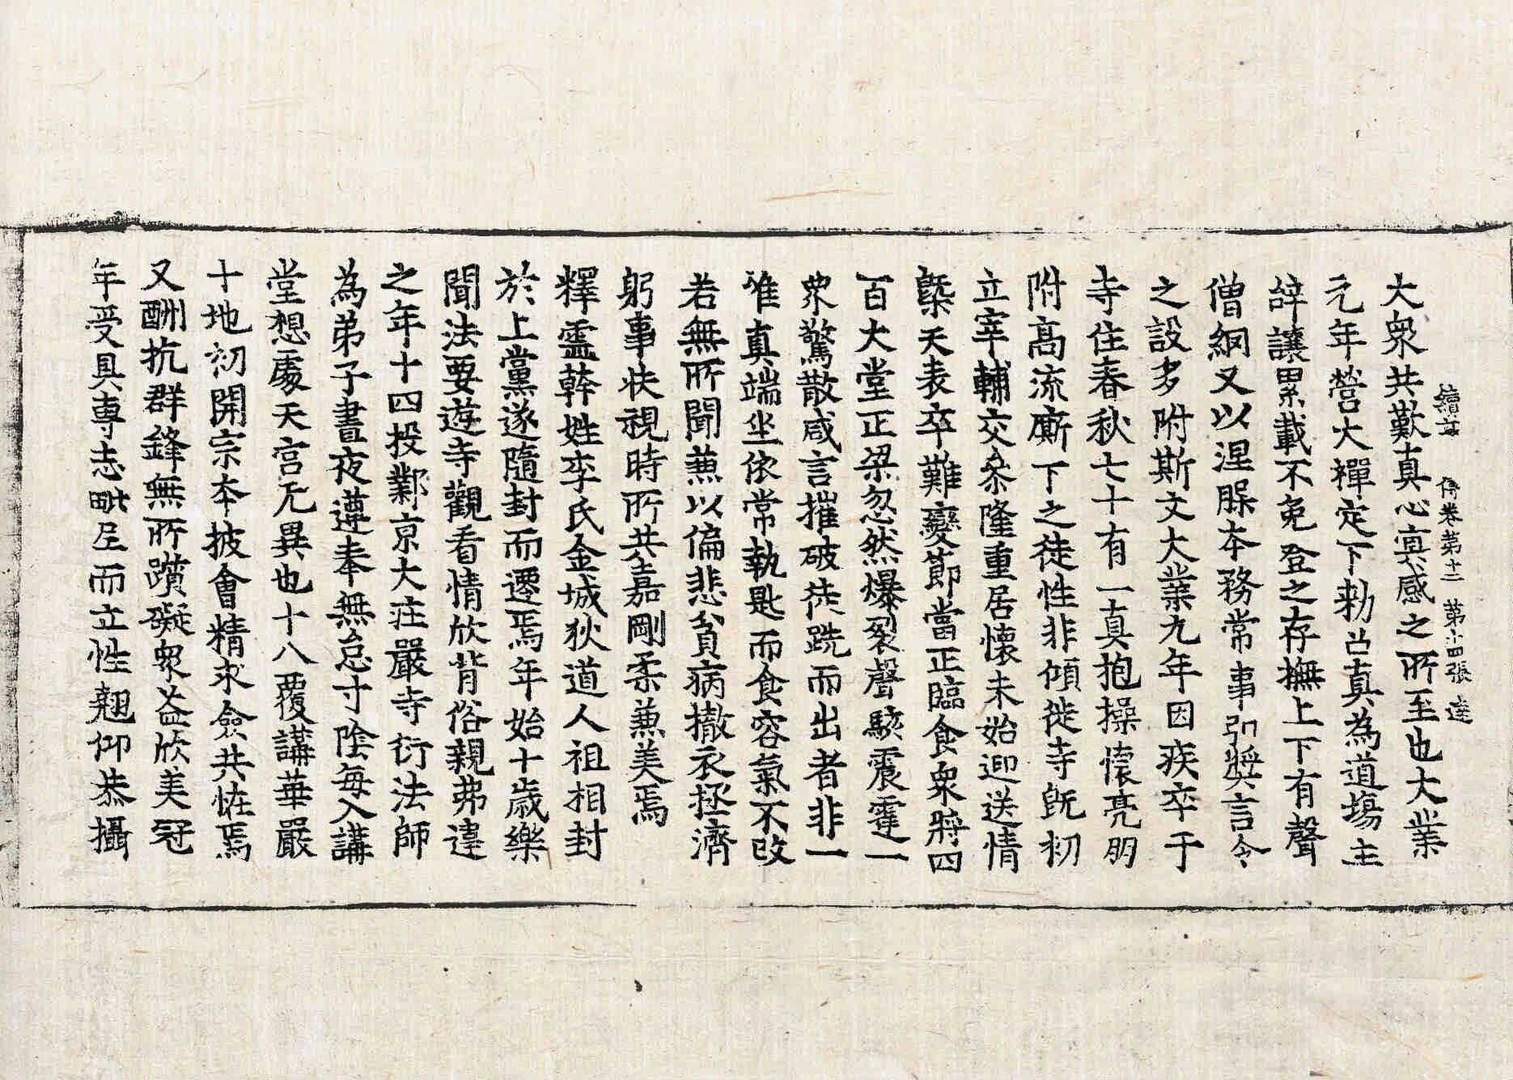 續高 傳卷第十二 第十四張 達
大衆共歎真心冥感之所至也大業
元年營大禪定下勑召真為道場主
辝讓累載不免登之存撫上下有聲
僧網又以涅槃本務常事引奬言令
之設多附斯文大業九年因疾卒于
寺住春秋七十有一真抱操懷亮朗
附高流廝下之徒性非傾徙寺旣初
立宰輔交叅隆重居懷未始迎送情
槩天表卒難變節當正臨食衆將四
百大堂正梁忽然爆裂聲駭震霆一
衆驚散咸言摧破徒跣而出者非一
唯真端坐依常執匙而食容氣不改
若無所聞兼以偏悲貧病撤衣拯濟
躬事扶視時所共嘉剛柔兼美焉
釋靈幹姓李氏金城狄道人祖相封
於上黨遂隨封而遷焉年始十歲樂
聞法要遊寺觀看情欣背俗親弗違
之年十四投鄴京大莊嚴寺衍法師
為弟子晝夜遵奉無怠寸陰每入講
堂想處天宮无異也十八覆講華嚴
十地初開宗本披會精求僉共恠焉
又酬抗群鋒無所躓礙衆益欣美冠
年受具專志毗尼而立性翹仰恭攝